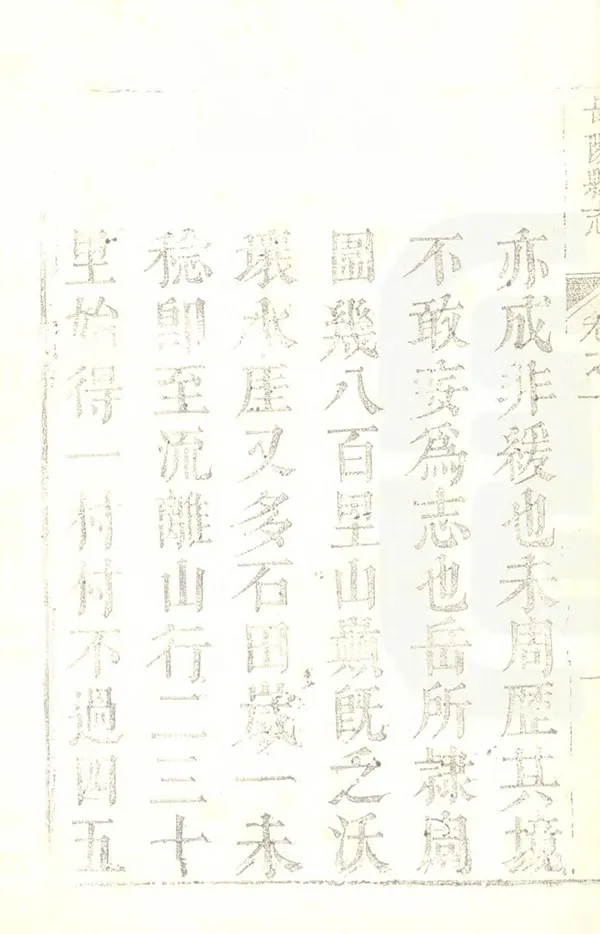 岳陽縣志 卷之一 一
亦成非緩也未周歷其境
不敢妄爲志也岳所隸周
圍幾八百里山巔旣乏沃
壤水厓又多石田歲一未
稔卽至流離山行二三十
里始得一村村不過四五